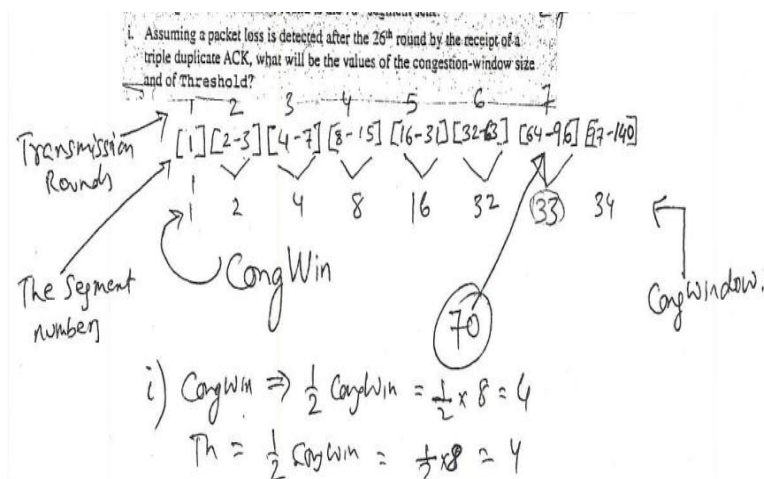 i. Assuming a packet loss is detected after the 26th round by the receipt of a
triple duplicate ACK, what will be the values of the congestion-window size
and of Threshold?
1 2 3 4 5 6 7
Transmission Rounds
[1] [2-3] [4-7] [8-15] [16-31] [32-63] [64-96] [97-140]
1 2 4 8 16 32 33 34
The Segment numbers
CongWin
70
CongWindow.
i) CongWin ⇒ 1/2 CongWin = 1/2 x 8 = 4
Th = 1/2 CongWin = 1/2 x 8 = 4